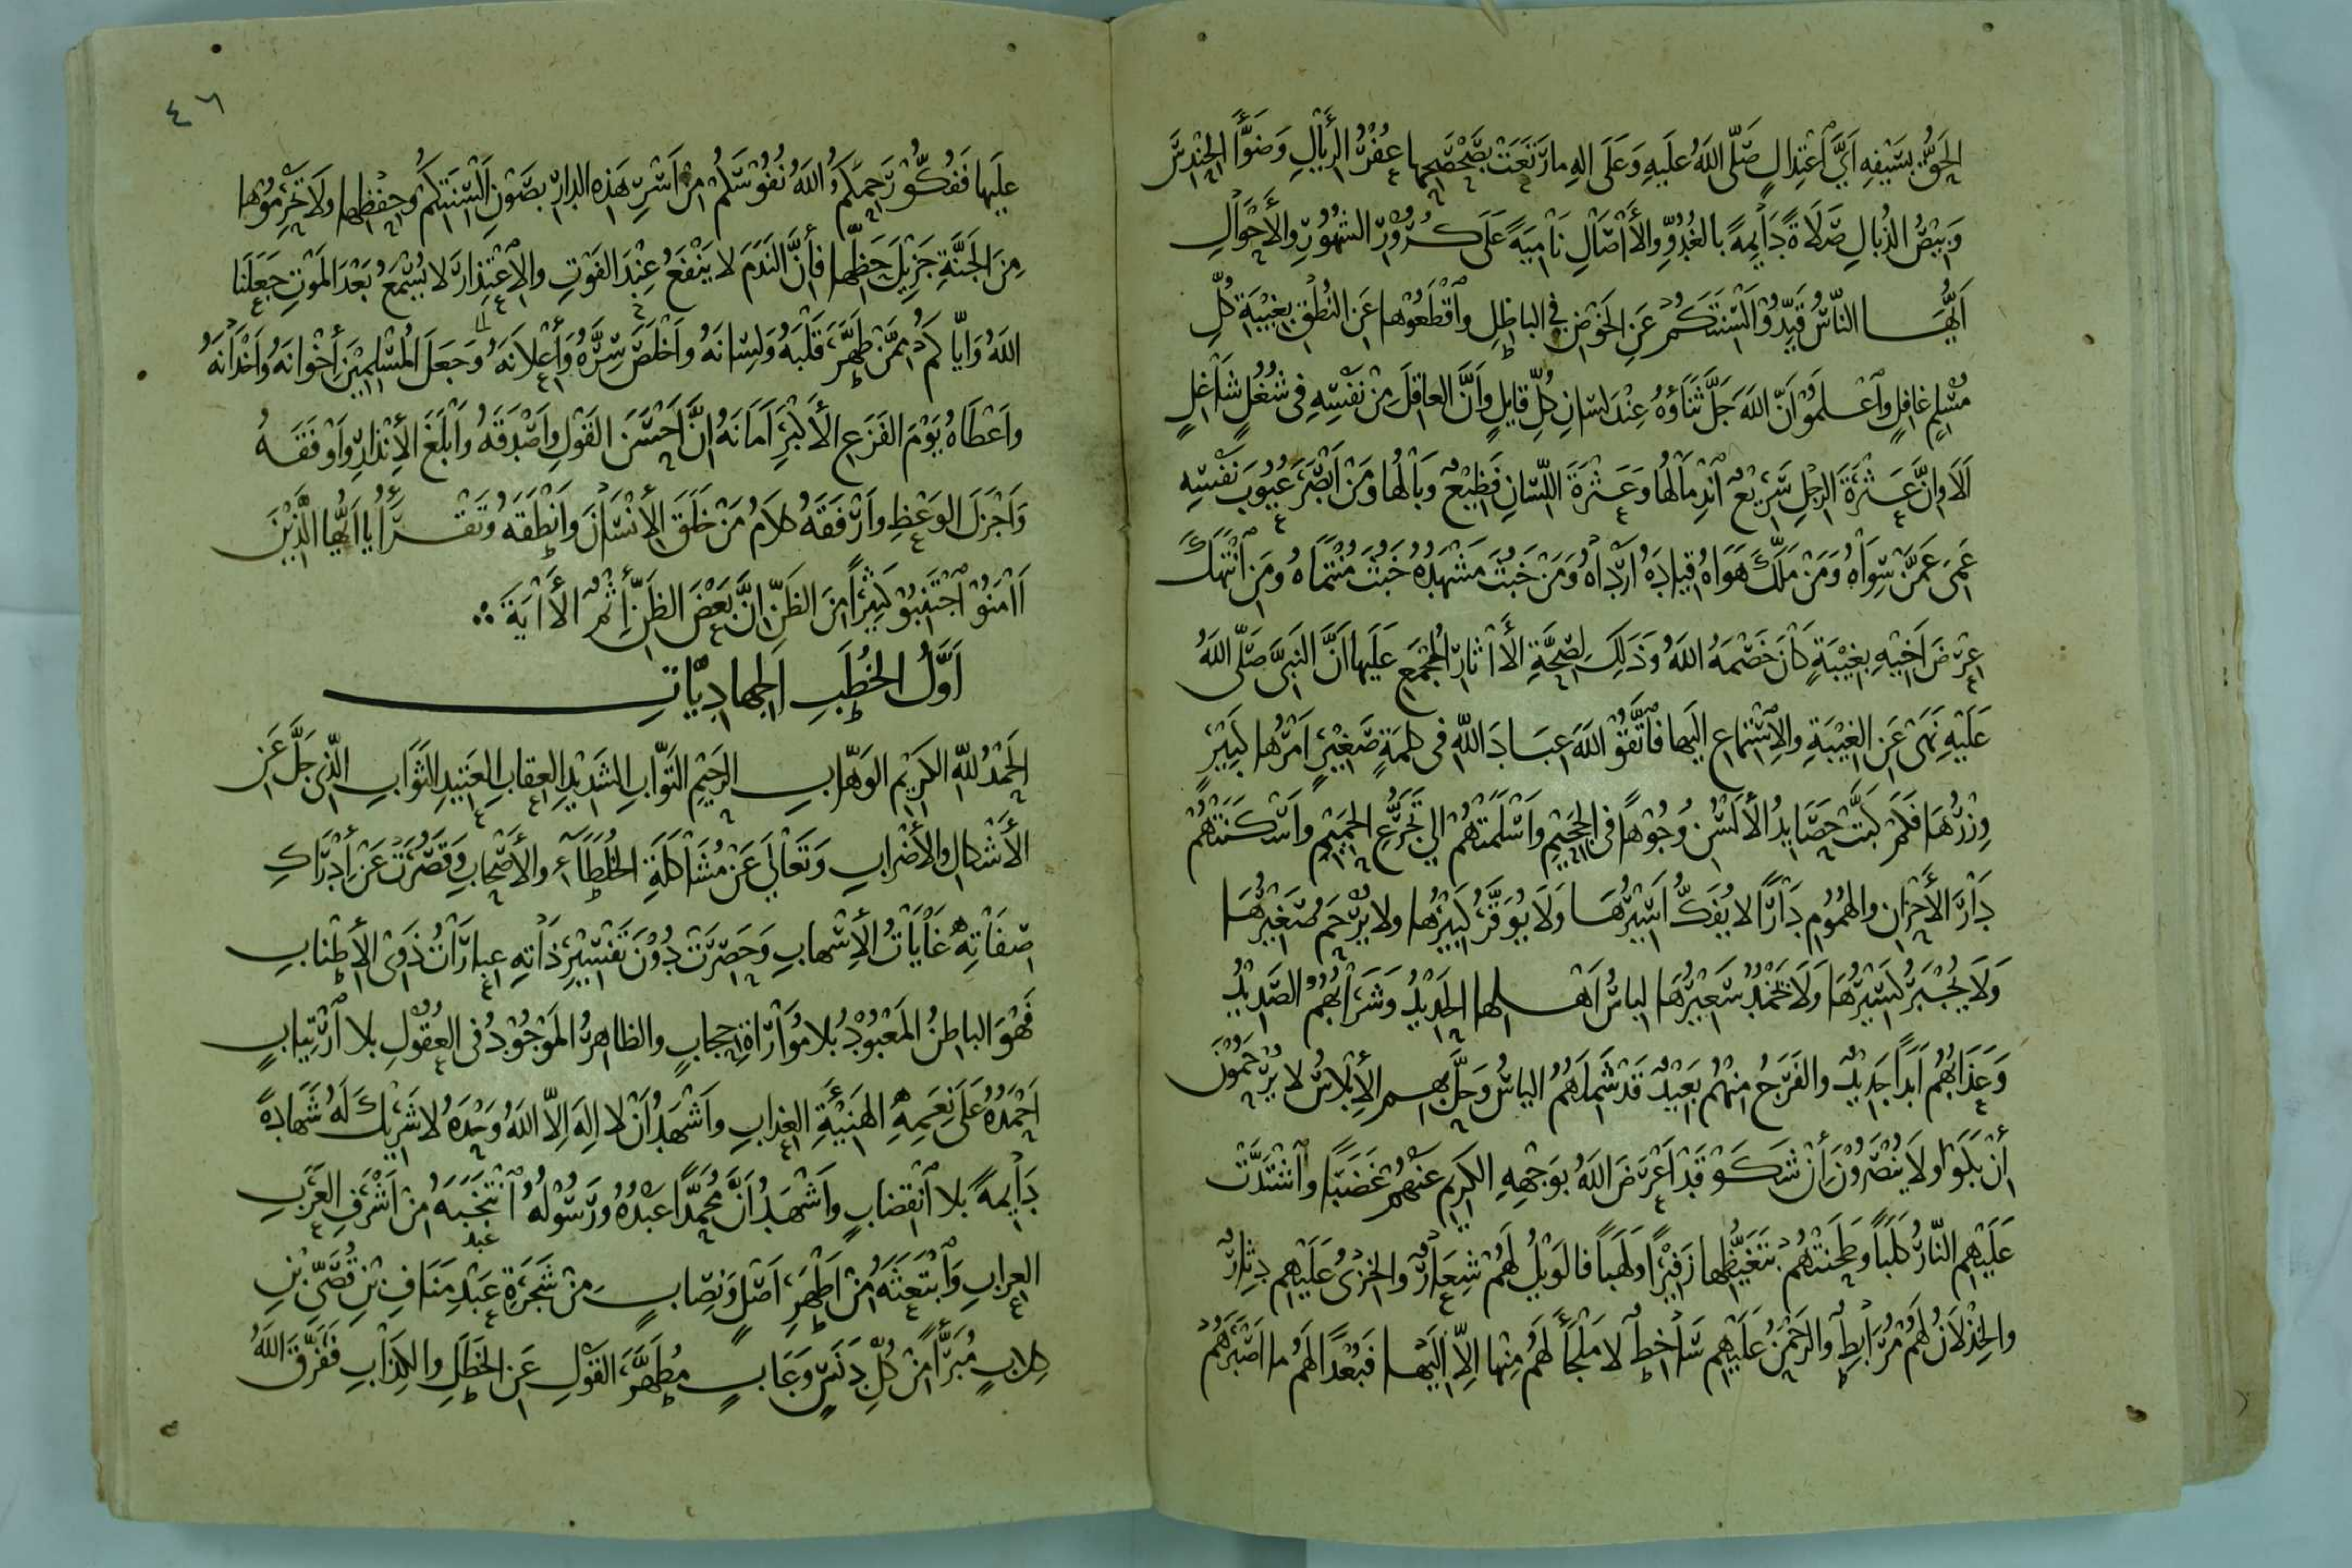 الحَقُّ بِسَيْفِهِ أَيَّ اعْتِدَالٍ صَلَّى اللهُ عَلَيهِ وَعَلَى الِهِ ما رَتَعَتْ بِصَحْصَحِها عُفْرُ الرِّئَالِ وَضَوَّأَ الحِنْدِسَ
وَبِيْضُ الذُّبالِ صَلَاةً دَايِمَةً بِالغُدُوِّ والأَاصَالِ نَامِيَةً عَلَى كُرُوْرِ الشُهُوْرِ والأَحْوَالِ
أَيُّهَا النّاسُ قَيِّدُوْا أَلْسِنَتَكُمْ عَنِ الخَوْضِ فِي الباطِلِ وَاقْطَعُوْها عَنِ النُطْقِ بِغِيْبَةِ كُلِّ
مُسْلِمٍ غافِلٍ وَاعْلَمُوْا أَنَّ اللهَ جَلَّ ثَنَاؤُهُ عِنْدَ لِسَانِ كُلِّ قَايِلٍ وَأَنَّ العاقِلَ مِنْ نَفْسِهِ فِي شُغُلٍ شَاغِلٍ
أَلَا وَإِنَّ عَثْرَةَ الرِجْلِ سَرِيْعٌ انْدِمَالُها وَعَثْرَةَ اللِّسَانِ فَظِيْعٌ وَبَالُها وَمَنْ أَبْصَرَ عُيُوْبَ نَفْسِهِ
عَمِيَ عَمَّنْ سِوَاهُ وَمَنْ مَلَّكَ هَوَاهُ قِيادَهُ أَرْدَاهُ وَمَنْ خَبُثَ مَشْهَدُهُ خَبُثَ مُنْتَمَاهُ وَمَنِ انْتَهَكَ
عِرْضَ أَخِيْهِ بِغِيْبَةٍ كَانَ خَصْمَهُ اللهُ وَذَلِكَ لِصِحَّةِ الأَاثَارِ المُجْمَعِ عَلَيها أَنَّ النَبِيَّ صَلَّى اللهُ
عَلَيْهِ نَهَى عَنِ الغِيْبَةِ والإِسْتِماعِ إِلَيها فَاتَّقُوْا اللهَ عِبَادَ اللهِ فِي كلِمَةٍ صَغِيْرٍ أَمْرُها كَبِيْرٍ
وِزْرُهَا فَكَمْ كَبَّتْ حَصَايِدُ الأَلْسُنِ وُجُوْهاً فِي الجَحِيْمِ وَأَسْلَمَتْهُمْ إِلي تَجَرُّعِ الحَمِيْمِ وَأَسْكَنَتْهُمْ
دَارَ الأَحْزانِ والهُمُوْمِ دَارًا لا يُفَكُّ أَسِيْرُهَا وَلَا يُوَقَّرُ كَبِيْرُها وَلا يُرْحَمُ صَغِيْرُهَا
وَلَا يُجْبَرُ كَسِيْرُهَا وَلَا يَخْمُدُ سَعِيْرُهَا لِباسُ أَهْلِها الحَدِيْدُ وَشَرَابُهُمُ الصَدِيْدُ
وَعَذَابُهُمْ أَبَداً جَدِيْدٌ والفَرَجُ مِنْهُمْ بَعِيْدٌ قَدْ شَمِلَهُمُ الياسُ وَحَلَّ بِهِمِ الإِبْلَاسُ لا يُرْحَمُوْنَ
إِنْ بَكَوْا وَلَا يُنْصَرُوْنَ إِنْ شَكَوْا قَدْ أَعْرَضَ اللهُ بِوَجْهِهِ الكَرِيْمِ عَنْهُمْ غَضَبًا وَاشْتَدَّتْ
عَلَيْهِمِ النّارُ كَلَباً وَطَحَنَتْهُمْ بِتَغَيُّظِها زَفِيْرًا وَلَهَباً فالوَيْلُ لَهُمْ شِعَارٌ والخِزْيُ عَلَيْهِمْ دِثارٌ
والخِذْلَانُ لَهُمْ مُرَابِطٌ والرَحْمَنُ عَلَيْهِمْ سَاخِطٌ لا مَلْجَأَ لَهُمْ مِنْها إِلَّا إِلَيْها فَبُعْدًا لَهُمْ ما أَصْبَرَهُمْ
٤٦
عَلَيها فَفُكُّوْا رَحِمَكُمُ اللهُ نُفُوْسَكُمْ مِنْ أَسْرِ هَذِهِ الدارِ بِصَوْنِ أَلْسِنَتِكُمْ وَحِفْظِها وَلَا تَحْرِمُوْها
مِنَ الجَنَّةِ جَزِيْلَ حَظِّها فَأَنَّ النَدَمَ لا يَنْفَعُ عِنْدَ الفَوْتِ والإِعْتِذارَ لا يُسْمَعُ بَعْدَ المَوْتِ جَعَلَنَا
اللهُ وَإِيّاكُمْ مِمَّنْ طَهَّرَ قَلْبَهُ وَلِسَانَهُ وَأَخْلَصَ سِرَّهُ وَأَعْلَانَهُ وَجَعَلَ المُسْلِمِيْنَ أَخْوانَهُ وَأَخْدَانَهُ
وأَعْطَاهُ يَوْمَ الفَزَعِ الأَكْبَرِ أَمَانَهُ إِنَّ أَحْسَنَ القَوْلِ وأَصْدَقَهُ وأَبْلَغَ الأِنْذارِ وَأَوْفَقَهُ
وَأَجْزَلَ الوَعْظِ وأَرْفَقَهُ كلامُ مَنْ خَلَقَ الأِنْسَانَ وأَنْطَقَهُ وَتَقْرَأُ يا أَيُّها الَّذِيْنَ
أَامَنُوْا اجْتَنِبُوْا كَثِيْرًا مِنَ الظَنِّ إِنَّ بَعْضَ الظَنِّ أِثْمٌ الأَايَةَ
أَوَّلُ الخُطَبِ الجِهادِيّاتِ
الحَمْدُ للهِ الكَرِيْمِ الوَهّابِ الرَحِيْمِ التَوّابِ الشَدِيْدِ العِقابِ العَتِيْدِ الثَوَابِ الَّذِي جَلَّ عَنِ
الأَشْكالِ والأَضْرَابِ وَتَعَالَى عَنْ مُشَاكَلَةِ الخُلَطَآءِ والأَصْحَابِ وَقَصُرَتْ عَنْ أِدْرَاكِ
صِفَاتِهِ غَايَاتُ الأِسْهابِ وَحَصِرَتْ دُوْنَ تَفْسِيْرِ ذَاتِهِ عِبارَاتُ ذَوِي الأِطْنابِ
فَهُوَ الباطِنُ المَعْبُوْدُ بِلا مُوَارَاةِ حِجابٍ والظاهِرُ المَوْجُوْدُ فِي العُقُوْلِ بِلا ارْتِيابٍ
أَحْمَدُهُ عَلَى نِعَمِهِ الهَنِيْئَةِ العِذابِ وأَشْهَدُ أَنْ لا إِلَهَ إِلَّا اللهُ وَحْدَهُ لا شَرِيْكَ لَهُ شَهادَةً
دَايِمةً بِلا انْقِضابٍ وأَشْهَدُ أَنَّ مُحَمَّدًا عَبْدُهُ وَرَسُوْلُهُ انْتَخَبَهُ مِنْ أَشْرَفِ العَرَبِ
العِرابِ وَابْتَعَثَهُ مِنْ أَطْهَرِ أَصْلٍ وَنِصابٍ مِنْ شَجَرَةِ عَبْدِ مَنَافِ بْنِ قُصَيِّ بْنِ
كِلابٍ مُبَرَّأً مِنْ كُلِّ دَنَسٍ وَعَابٍ مُطَهَّرَ القَوْلِ عَنِ الخَطَلِ والكِذَابِ فَفَرَّقَ اللهُ